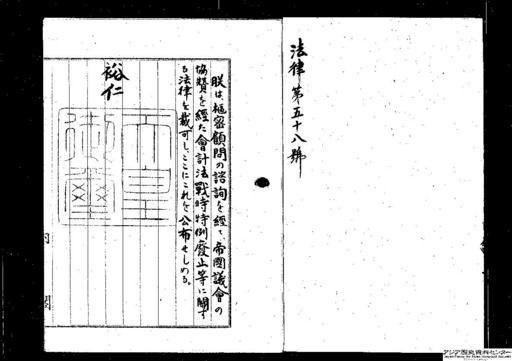 法律第五十八號
朕は、樞密顧問の諮詢を經て、帝國議會の
協贊を經た會計法戰時特例廢止等に關す
る法律を裁可し、ここにこれを公布せしめる。
裕仁
天皇
御璽
アジア歴史資料センター